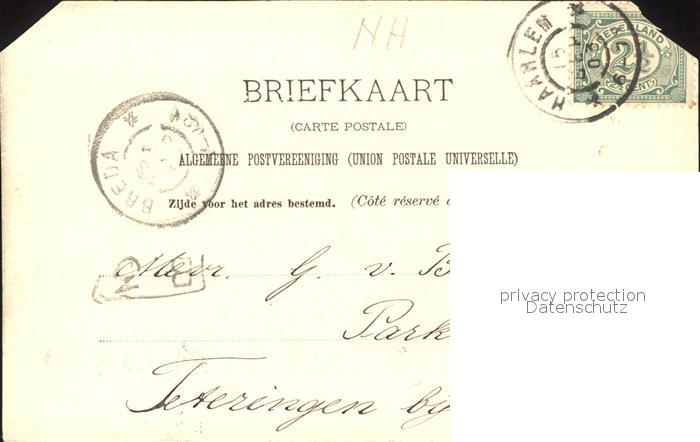 NH
HAARLEM
NEDERLAND
2½
CENT
BRIEFKAART
(CARTE POSTALE)
BREDA
ALGEMEENE POSTVEREENIGING (UNION POSTALE UNIVERSELLE)
Zijde voor het adres bestemd. (Côté réservé
Mevr. G. v. B
privacy protection
Datenschutz
Park
Teteringen bij